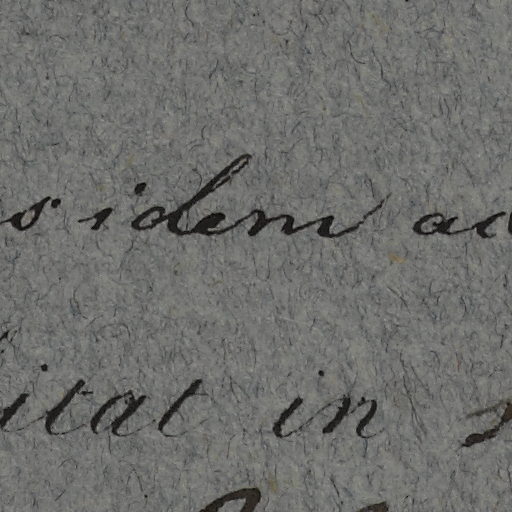 s idem ac
itat in